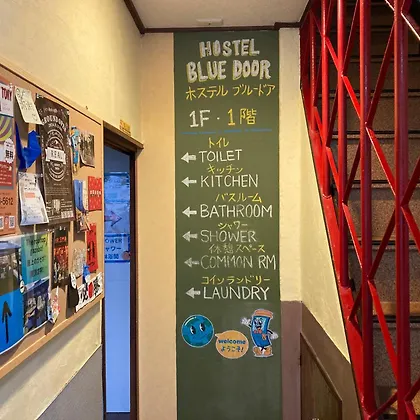 HOSTEL
BLUE DOOR
ホステル ブルードア
1F・1階
トイレ
← TOILET
キッチン
← KITCHEN
バスルーム
← BATHROOM
シャワー
← SHOWER
休憩スペース
← COMMON RM
コインランドリー
← LAUNDRY
welcome
ようこそ!